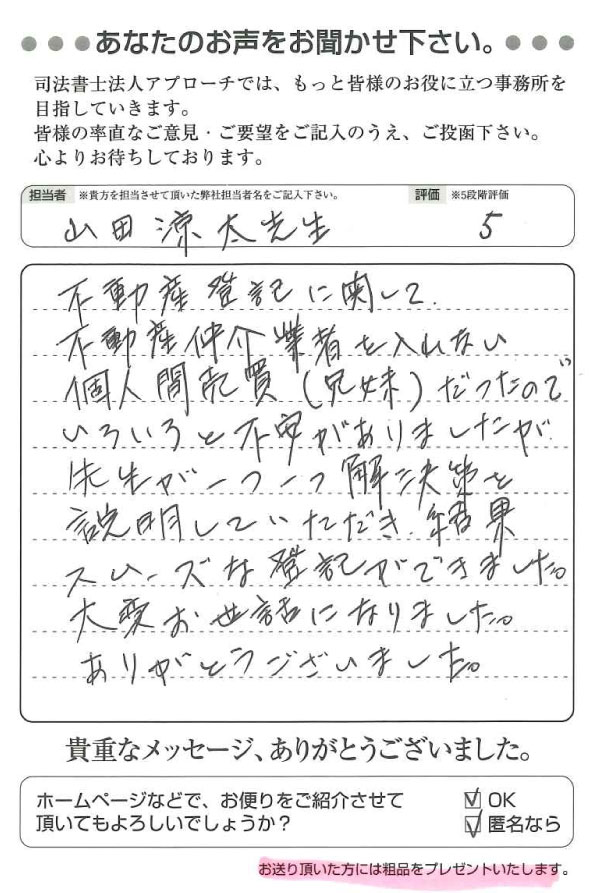 ●●●あなたのお声をお聞かせ下さい。●●●
司法書士法人アプローチでは、もっと皆様のお役に立つ事務所を
目指していきます。
皆様の率直なご意見・ご要望をご記入のうえ、ご投函下さい。
心よりお待ちしております。
担当者 ※貴方を担当させて頂いた弊社担当者名をご記入下さい。 評価 ※5段階評価
山田涼太先生 5
不動産登記に関して、
不動産仲介業者を入れない
個人間売買(兄妹)だったので
いろいろと不安がありましたが
先生が一つ一つ解決策を
説明していただき、結果
スムーズな登記ができました。
大変お世話になりました。
ありがとうございました。
貴重なメッセージ、ありがとうございました。
ホームページなどで、お便りをご紹介させて ☑ OK
頂いてもよろしいでしょうか? ☑ 匿名なら
お送り頂いた方には粗品をプレゼントいたします。